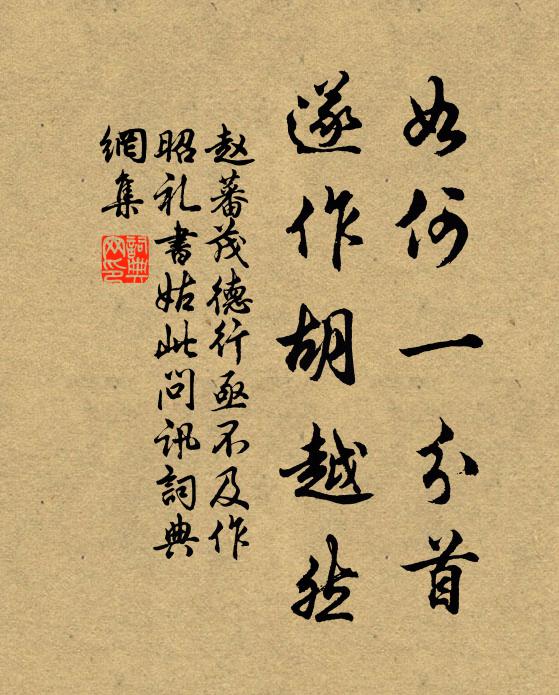 如何一分首
遂作胡越然
赵蕃茂德行亟不及作
昭礼書姑此问讯詞典
網集
詞典網印